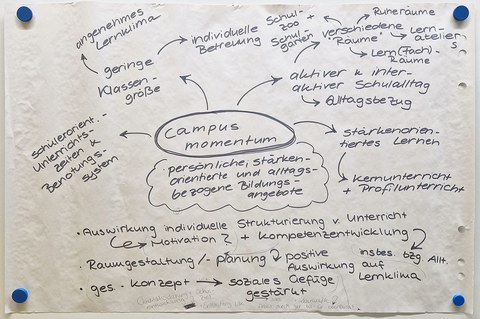 angenehmes
Lernklima
individuelle
Betreuung
geringe
Klassen-
größe
Schul-
zoo +
Schul-
garten
verschiedene
"Räume"
Ruheräume
Lern-
ateliers
Lern(Fach)-
Räume
aktiver & inter-
aktiver Schulalltag
Alltagsbezug
schülerorient.
Unterrichts-
zeiten &
Benotungs-
system
Campus
momentum
persönliche, stärken-
orientierte und alltags-
bezogene Bildungs-
angebote
stärkenorien-
tiertes Lernen
Kernunterricht
+ Profilunterricht
• Auswirkung individuelle Strukturierung v. Unterricht
Motivation ? + Kompetenzentwicklung
• Raumgestaltung /- planung positive insbes. bzg. Allt.
Auswirkung auf Lernklima
• ges. Konzept → soziales Gefüge
gestärkt